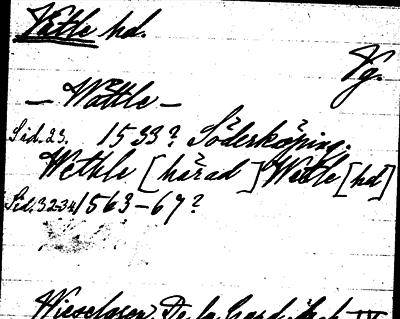 Vättle hd.
Vg.
— Wättle —
Sid. 23. 1533? Söderköping.
Wethle [härad] Wetle [hd]
Sid. 32-34 1563-67?
Wieselgren, De la Gard. Ark. IV